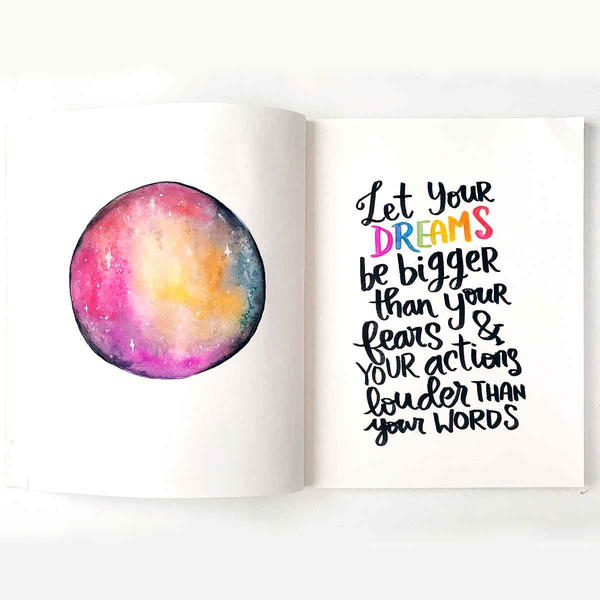 Let Your
DREAMS
be bigger
than your
fears &
YOUR actions
louder THAN
your WORDS